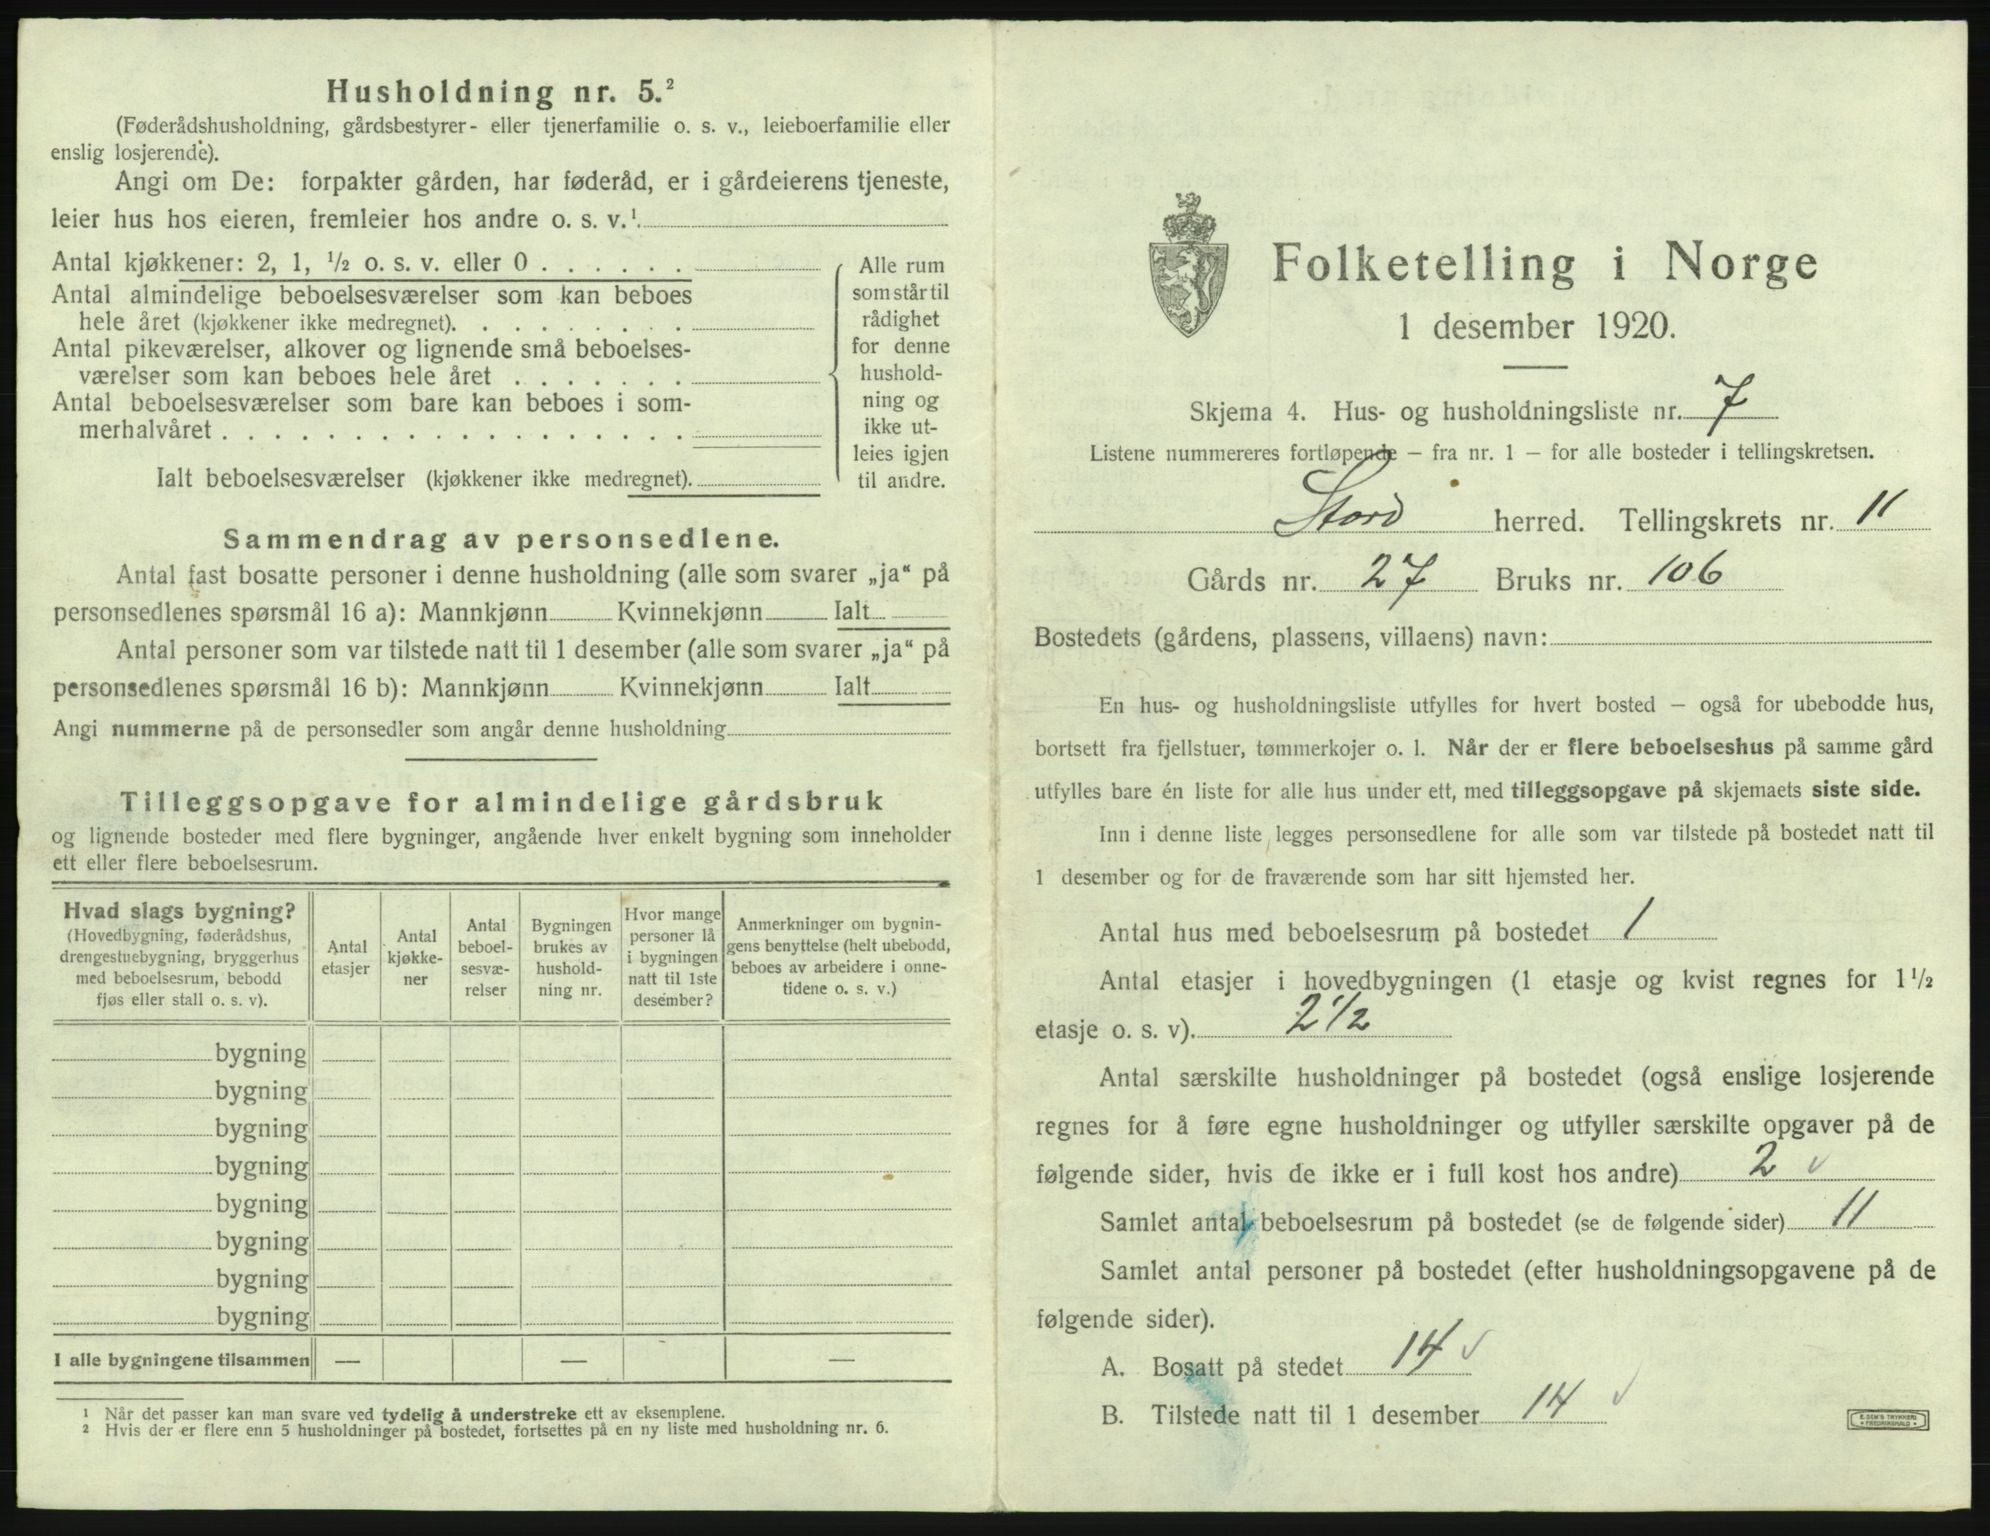 Husholdning nr. 5.²
(Føderådshusholdning, gårdsbestyrer- eller tjenerfamilie o. s. v., leieboerfamilie eller
enslig losjerende).
Angi om De: forpakter gården, har føderåd, er i gårdeierens tjeneste,
leier hus hos eieren, fremleier hos andre o. s. v.¹.
Antal kjøkkener: 2, 1, ½ o. s. v. eller 0 . . . . . .
Antal almindelige beboelsesværelser som kan beboes
hele året (kjøkkener ikke medregnet). . . . . . . . .
Antal pikeværelser, alkover og lignende små beboelses-
værelser som kan beboes hele året . . . . . . .
Antal beboelsesværelser som bare kan beboes i som-
merhalvåret . . . . . . . . . . . . . . . . . .
Ialt beboelsesværelser (kjøkkener ikke medregnet).
Alle rum
som står til
rådighet
for denne
hushold-
ning og
ikke ut-
leies igjen
til andre.
Sammendrag av personsedlene.
Antal fast bosatte personer i denne husholdning (alle som svarer „ja“ på
personsedlenes spørsmål 16 a): Mannkjønn Kvinnekjønn Ialt
Antal personer som var tilstede natt til 1 desember (alle som svarer „ja“ på
personsedlenes spørsmål 16 b): Mannkjønn Kvinnekjønn Ialt
Angi nummerne på de personsedler som angår denne husholdning
Tilleggsopgave for almindelige gårdsbruk
og lignende bosteder med flere bygninger, angående hver enkelt bygning som inneholder
ett eller flere beboelsesrum.
Hvad slags bygning?
(Hovedbygning, føderådshus,
drengestuebygning, bryggerhus
med beboelsesrum, bebodd
fjøs eller stall o. s. v).
Antal
etasjer
Antal
kjøkke-
ner
Antal
beboel-
sesvæ-
relser
Bygningen
brukes av
hushold-
ning nr.
Hvor mange
personer lå
i bygningen
natt til 1ste
desember?
Anmerkninger om bygnin-
gens benyttelse (helt ubebodd,
beboes av arbeidere i onne-
tidene o. s. v.)
bygning
bygning
bygning
bygning
bygning
bygning
bygning
bygning
I alle bygningene tilsammen — — —
¹ Når det passer kan man svare ved tydelig å understreke ett av eksemplene.
² Hvis der er flere enn 5 husholdninger på bostedet, fortsettes på en ny liste med husholdning nr. 6.
Folketelling i Norge
1 desember 1920.
Skjema 4. Hus- og husholdningsliste nr. 7
Listene nummereres fortløpende – fra nr. 1 – for alle bosteder i tellingskretsen.
Stord herred. Tellingskrets nr. 11
Gårds nr. 27 Bruks nr. 106
Bostedets (gårdens, plassens, villaens) navn:
En hus- og husholdningsliste utfylles for hvert bosted – også for ubebodde hus,
bortsett fra fjellstuer, tømmerkojer o. l. Når der er flere beboelseshus på samme gård
utfylles bare én liste for alle hus under ett, med tilleggsopgave på skjemaets siste side.
Inn i denne liste legges personsedlene for alle som var tilstede på bostedet natt til
1 desember og for de fraværende som har sitt hjemsted her.
Antal hus med beboelsesrum på bostedet 1
Antal etasjer i hovedbygningen (1 etasje og kvist regnes for 1½
etasje o. s. v). 2 1/2
Antal særskilte husholdninger på bostedet (også enslige losjerende
regnes for å føre egne husholdninger og utfyller særskilte opgaver på de
følgende sider, hvis de ikke er i full kost hos andre) 2 ✓
Samlet antal beboelsesrum på bostedet (se de følgende sider) 11
Samlet antal personer på bostedet (efter husholdningsopgavene på de
følgende sider).
A. Bosatt på stedet 14 ✓
B. Tilstede natt til 1 desember 14 ✓
E. SEM'S TRYKKERI
FREDRIKSHALD